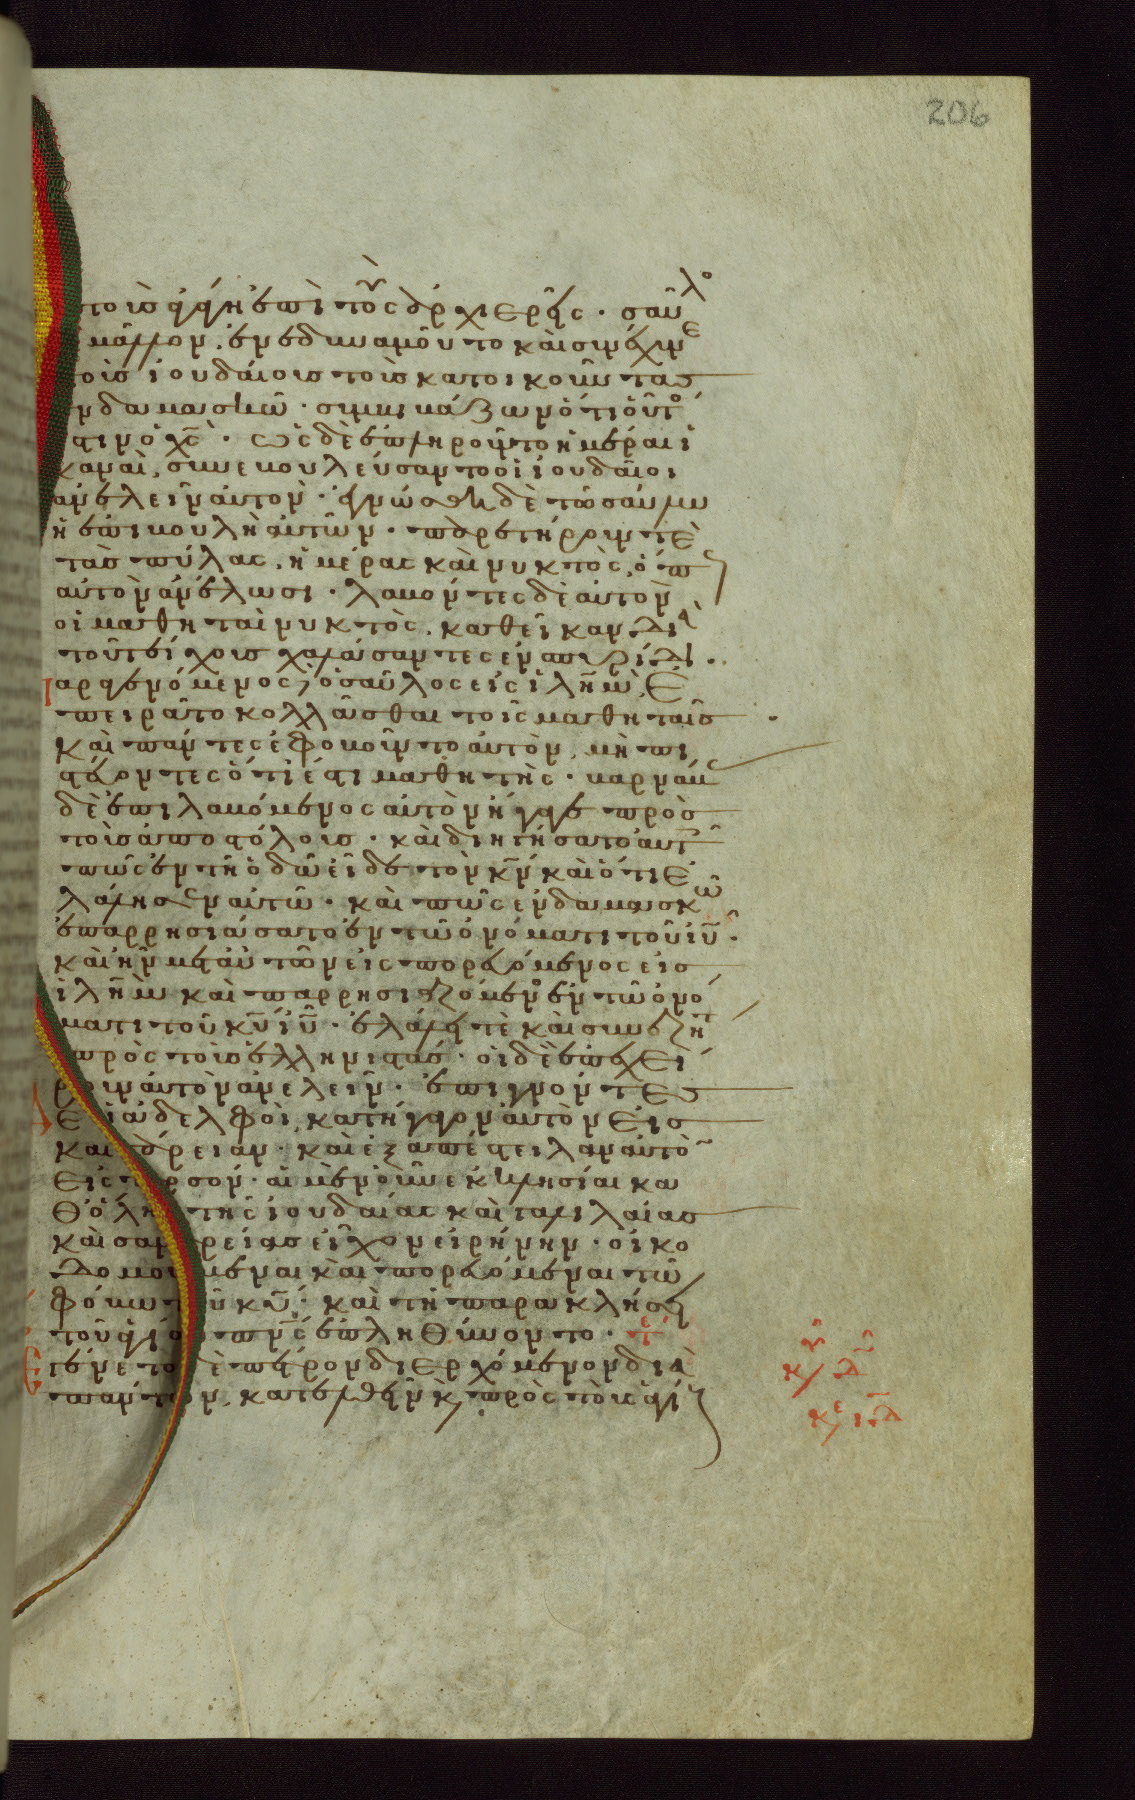 τοὺς ἀγάγη ἐπὶ τοὺς ἀρχιερεῖς · σαῦλο
μᾶλλον ἐνεδυναμοῦτο καὶ συνέχυνε
τοὺς ἰουδαίους τοὺς κατοικοῦντας
ἐν δαμασκῶ · συμβιβάζων ὅτι οὗτο
ἐστιν ὁ χ̅ς̅ · ὡς δὲ ἐπληροῦντο ἡμέραι ἱ
καναὶ, συνεβουλεύσαντο οἱ ἰουδαῖοι
ἀνελεῖν αὐτὸν · ἐγνώσθη δὲ τῶ σαύλω
ἡ ἐπιβουλὴ αὐτῶν · παρετήρουν τὲ
τὰς πύλας, ἡμέρας καὶ νυκτὸς, ὅπ
αὐτὸν ἀνέλωσι · λαβόντες δὲ αὐτὸν
οἱ μαθηταὶ νυκτὸς, καθῆκαν διὰ
τοῦ τείχους χαλάσαντες ἐν σπυρίδι ·
αραγενόμενος ὁ σαῦλος εἰς ἱ̅λ̅η̅μ̅, ἐ
πειρᾶτο κολλᾶσθαι τοῖς μαθηταῖς ·
καὶ πάντες ἐφοβοῦντο αὐτὸν, μὴ πι
στεύοντες ὅτι ἐστὶ μαθητὴς · βαρνάβας
δὲ ἐπιλαβόμενος αὐτὸν ἤγαγε πρὸς
τοὺς ἀποστόλους · καὶ διηγήσατο αὐτοῖς
πῶς ἐν τῆ ὁδῶ εἶδε τὸν κ̅ν̅ καὶ ὅτι ἐ
λάλησεν αὐτῶ · καὶ πῶς ἐν δαμασκῶ
ἐπαρρησιάσατο ἐν τῶ ὀνόματι τοῦ ἰ̅υ̅ ·
καὶ ἦν μετ' αὐτῶν εἰσπορευόμενος εἰς
ἱ̅λ̅η̅μ̅ καὶ παρρησιαζόμενος ἐν τῶ ὀνό
ματι τοῦ κ̅υ̅ ἰ̅υ̅ · ἐλάλει τὲ καὶ συνεζήτ
πρὸς τοὺς ἑλληνιστάς · οἱ δὲ ἐπεχεί
ρουν αὐτὸν ἀνελεῖν · ἐπιγνόντες
δὲ οἱ ἀδελφοὶ, κατήγαγον αὐτὸν εἰς
καισάρειαν · καὶ ἐξαπέστειλαν αὐτὸν
εἰς ταρσόν · αἱ μὲν οὖν ἐκκλησίαι κα
θ' ὅλης τῆς ἰουδαίας καὶ γαλιλαίας
καὶ σαμαρείας εἶχον εἰρήνην · οἰκο
δομούμεναι καὶ πορευόμεναι τῶ
φόβω τοῦ κ̅υ̅ · καὶ τῆ παρακλήσει
τοῦ ἁγίου π̅ν̅ς̅ ἐπληθύνοντο ·
Ἐγένετο δὲ πέτρον διερχόμενον διὰ
πάντων, κατελθεῖν κ̀ πρὸς τοὺς ἁγί
206